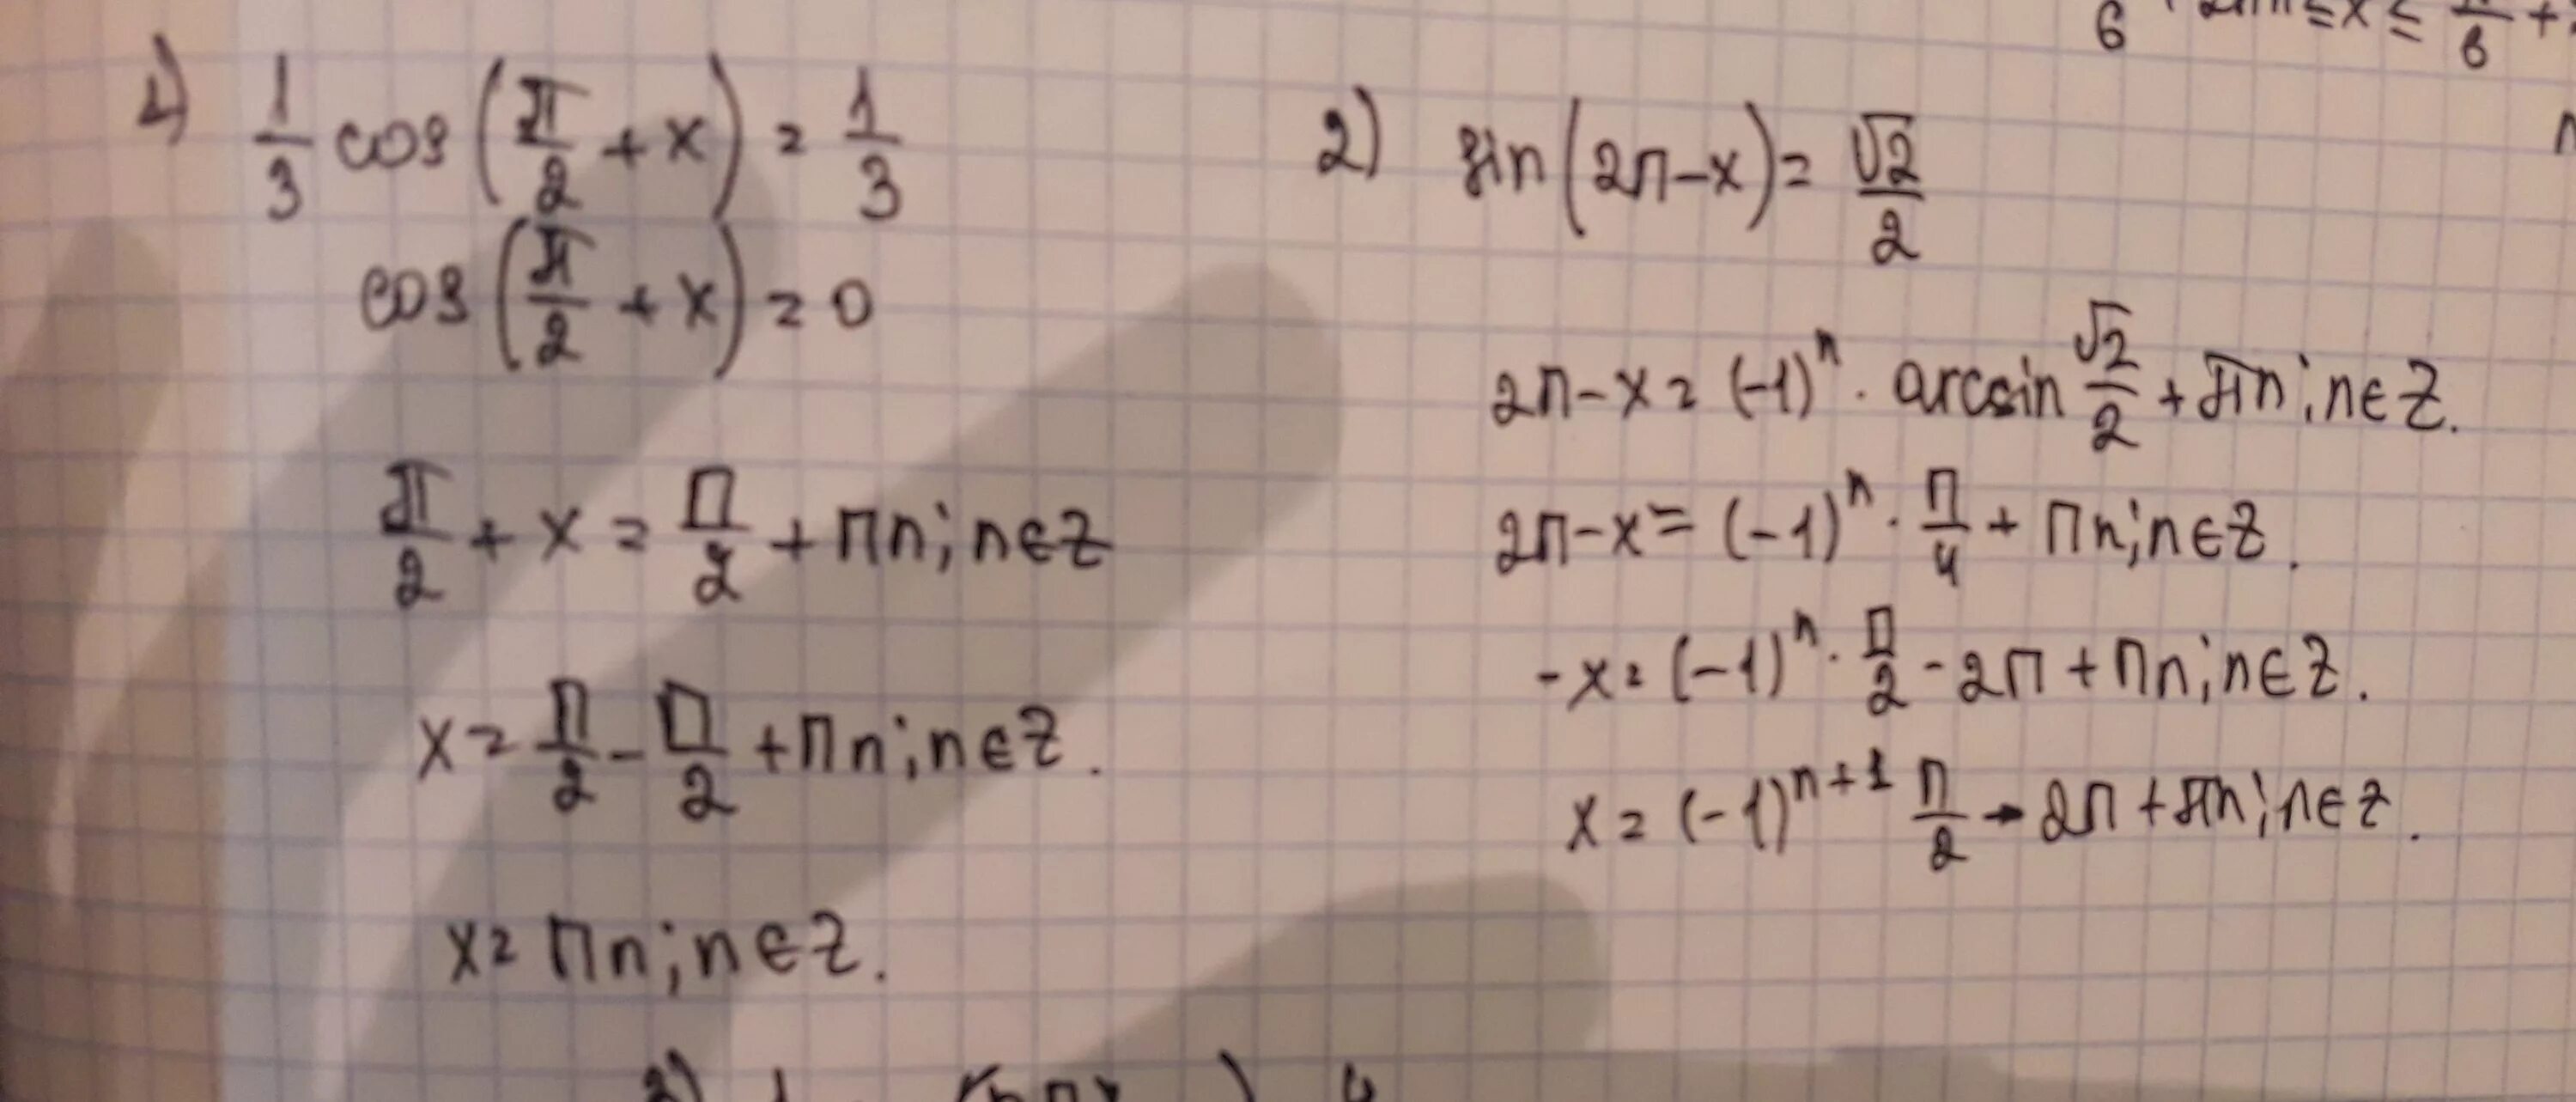 1) 1/3 cos(π/2 + x) = 1/3
cos(π/2 + x) = 0
π/2 + x = π/2 + πn; n∈Z
x = π/2 - π/2 + πn; n∈Z.
x = πn; n∈Z.
2) sin(2π-x) = √2/2
2π-x = (-1)^n · arcsin √2/2 + πn; n∈Z.
2π-x = (-1)^n · π/4 + πn; n∈Z.
-x = (-1)^n · π/2 - 2π + πn; n∈Z.
x = (-1)^(n+1) π/2 - 2π + πn; n∈Z.